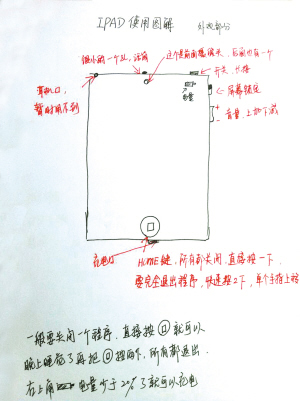 IPAD 使用图解 外观部分
很小的一个孔,话筒
这个是前面摄像头,后面也有一个
开关,长按
耳机口,
暂时用不到
电量
屏幕锁定
+
-
音量,上加下减
充电口
HOME键,所有都关闭,直接按一下,
要完全退出程序,快速按2下,单个手指上移
一般要关闭一个程序,直接按 就可以
晚上睡觉了再把 按两下,所有都退出.
右上角 电量少于20%了就可以充电